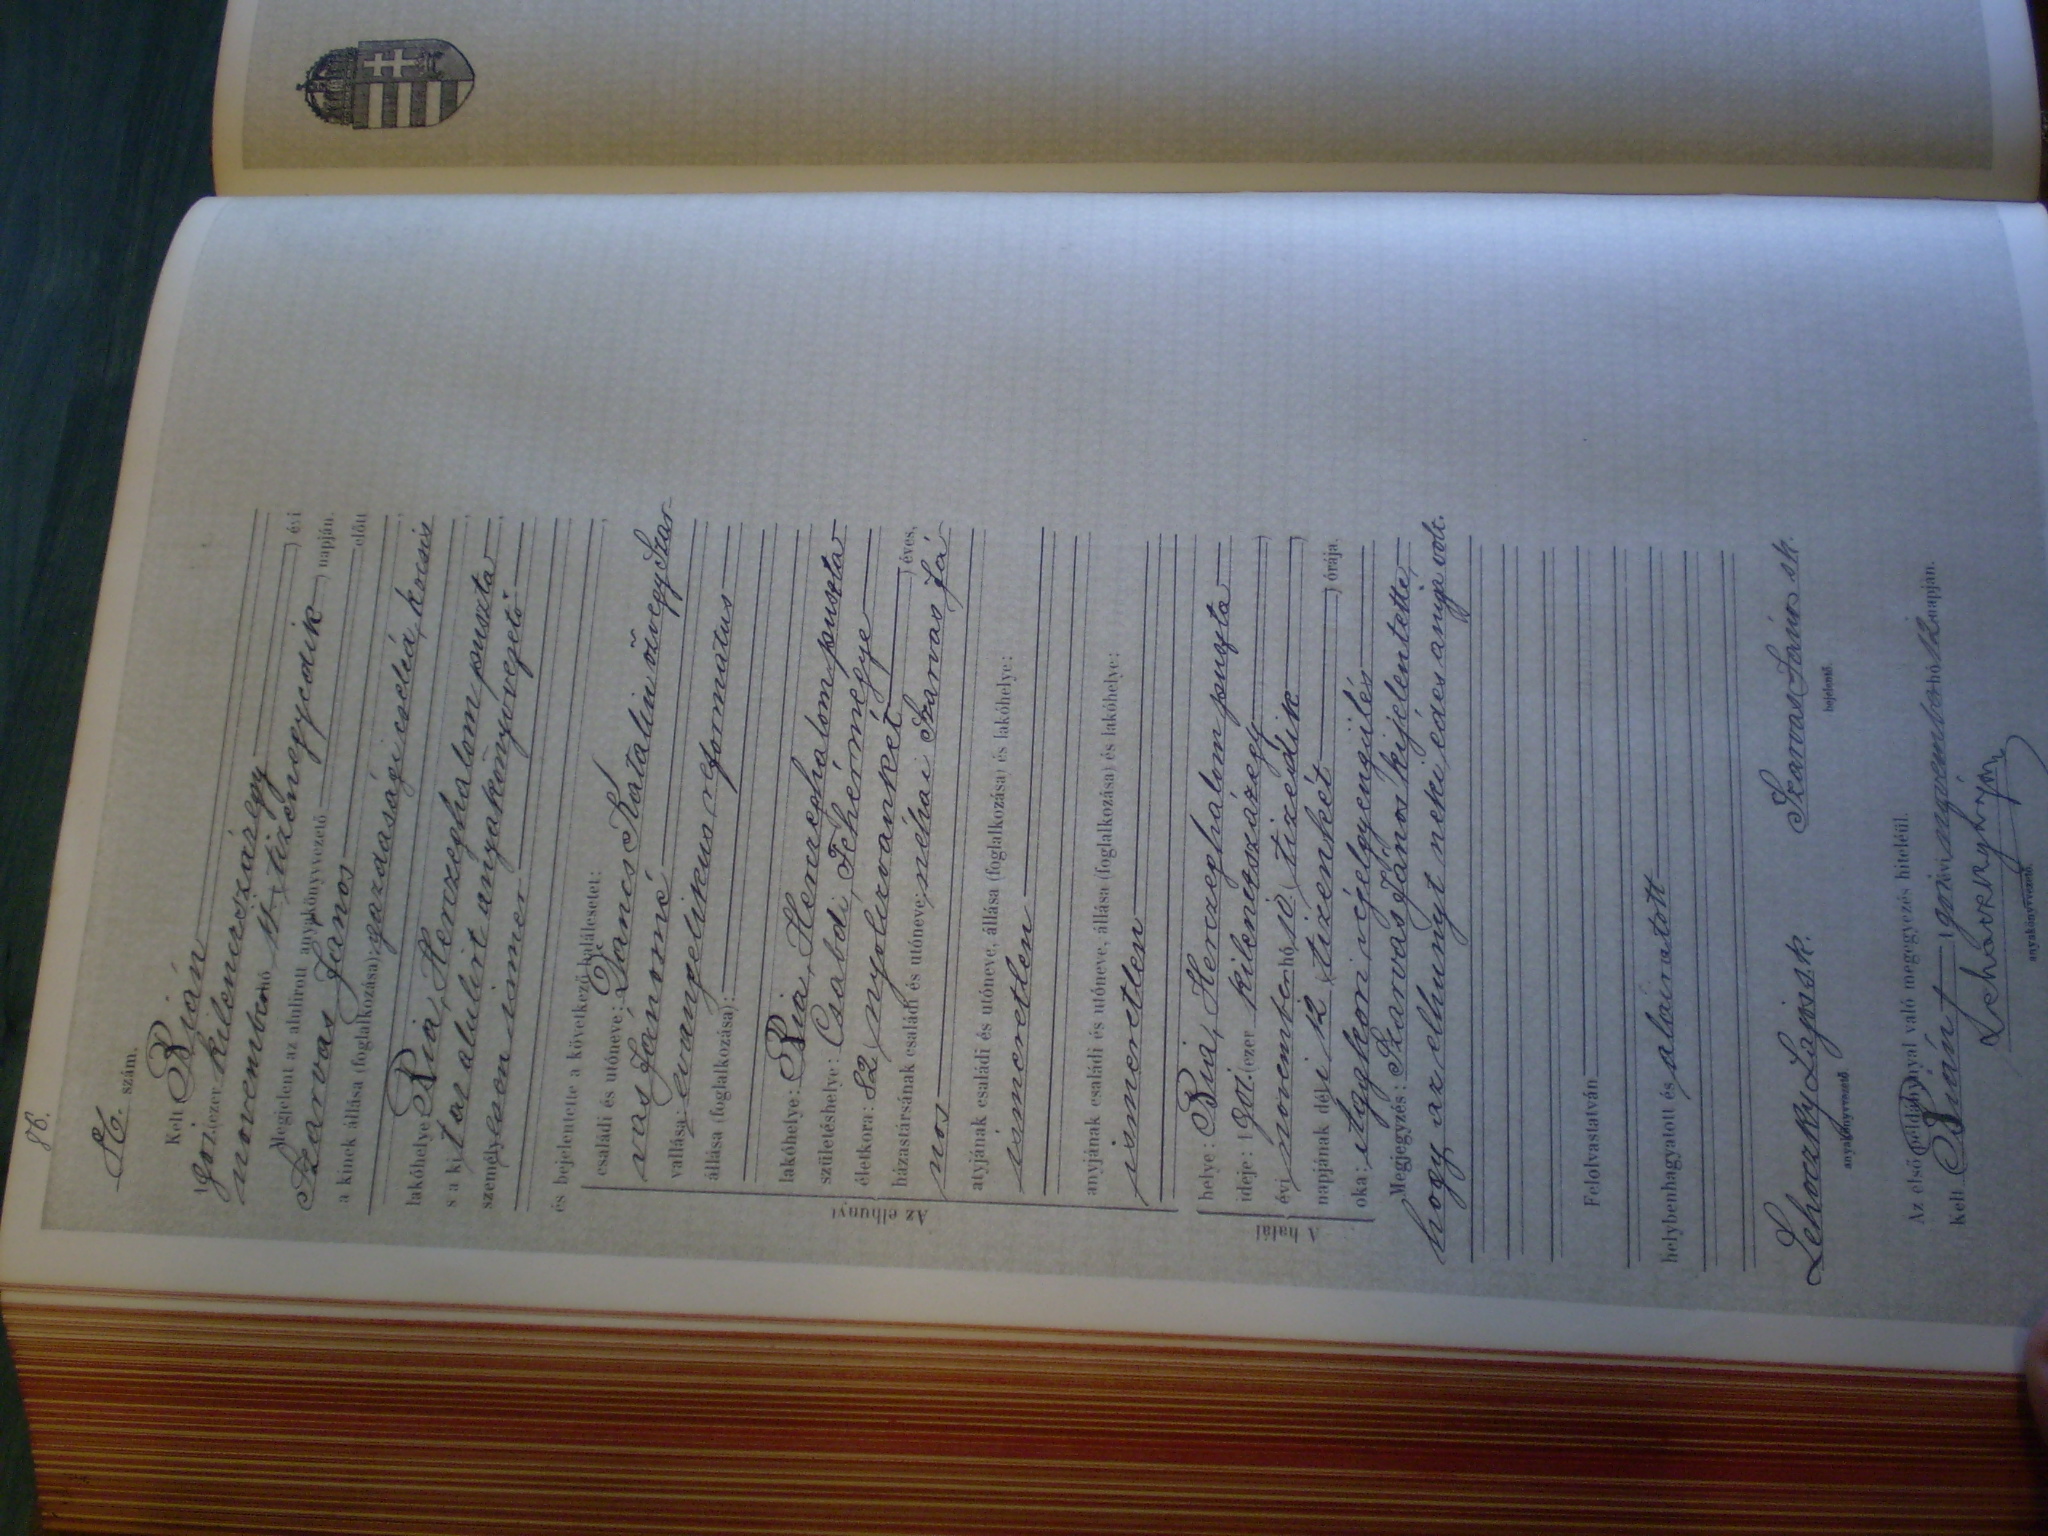 86.
86. szám.
Kelt Bián
1901. ezer kilenczszázegy évi
november hó 11 (tizenegyedik) napján.
Megjelent az alulirott anyakönyvvezető előtt
Szarvas János
a kinek állása (foglalkozása): gazdasági cseléd, kocsis
lakóhelye Bia, Herczeghalom puszta
s a kit az alulirt anyakönyvvezető
személyesen ismer
és bejelentette a következő halálesetet:
Az elhunyt
családi és utóneve: Dancs Katalin özvegy Szar-
vas Jánosné
vallása: evangelikus református
állása (foglalkozása):
lakóhelye: Bia, Herczeghalom puszta
születéshelye: Csabdi, Fehérmegye
életkora: 82 (nyolczvankét) éves,
házastársának családi és utóneve: néhai Szarvas Já-
nos
atyjának családi és utóneve, állása (foglalkozása) és lakóhelye:
ismeretlen
anyjának családi és utóneve, állása (foglalkozása) és lakóhelye:
ismeretlen
A halál
helye: Bia, Herczeghalom puszta
ideje: 1901. (ezer kilenczszázegy)
évi november hó 10 (tizedik)
napjának déli 12 (tizenkét) órája,
oka: aggkori végelgyengülés
Megjegyzés: Szarvas János kijelentette,
hogy az elhunyt neki édes anyja volt.
Felolvastatván
helybenhagyatott és aláiratott
Lehoczky Lajos s.k. Szarvas János sk.
anyakönyvvezető bejelentő.
Az első példánynyal való megegyezés hiteléül.
Kelt Bián 1901 évi november hó napján.
anyakönyvvezető.